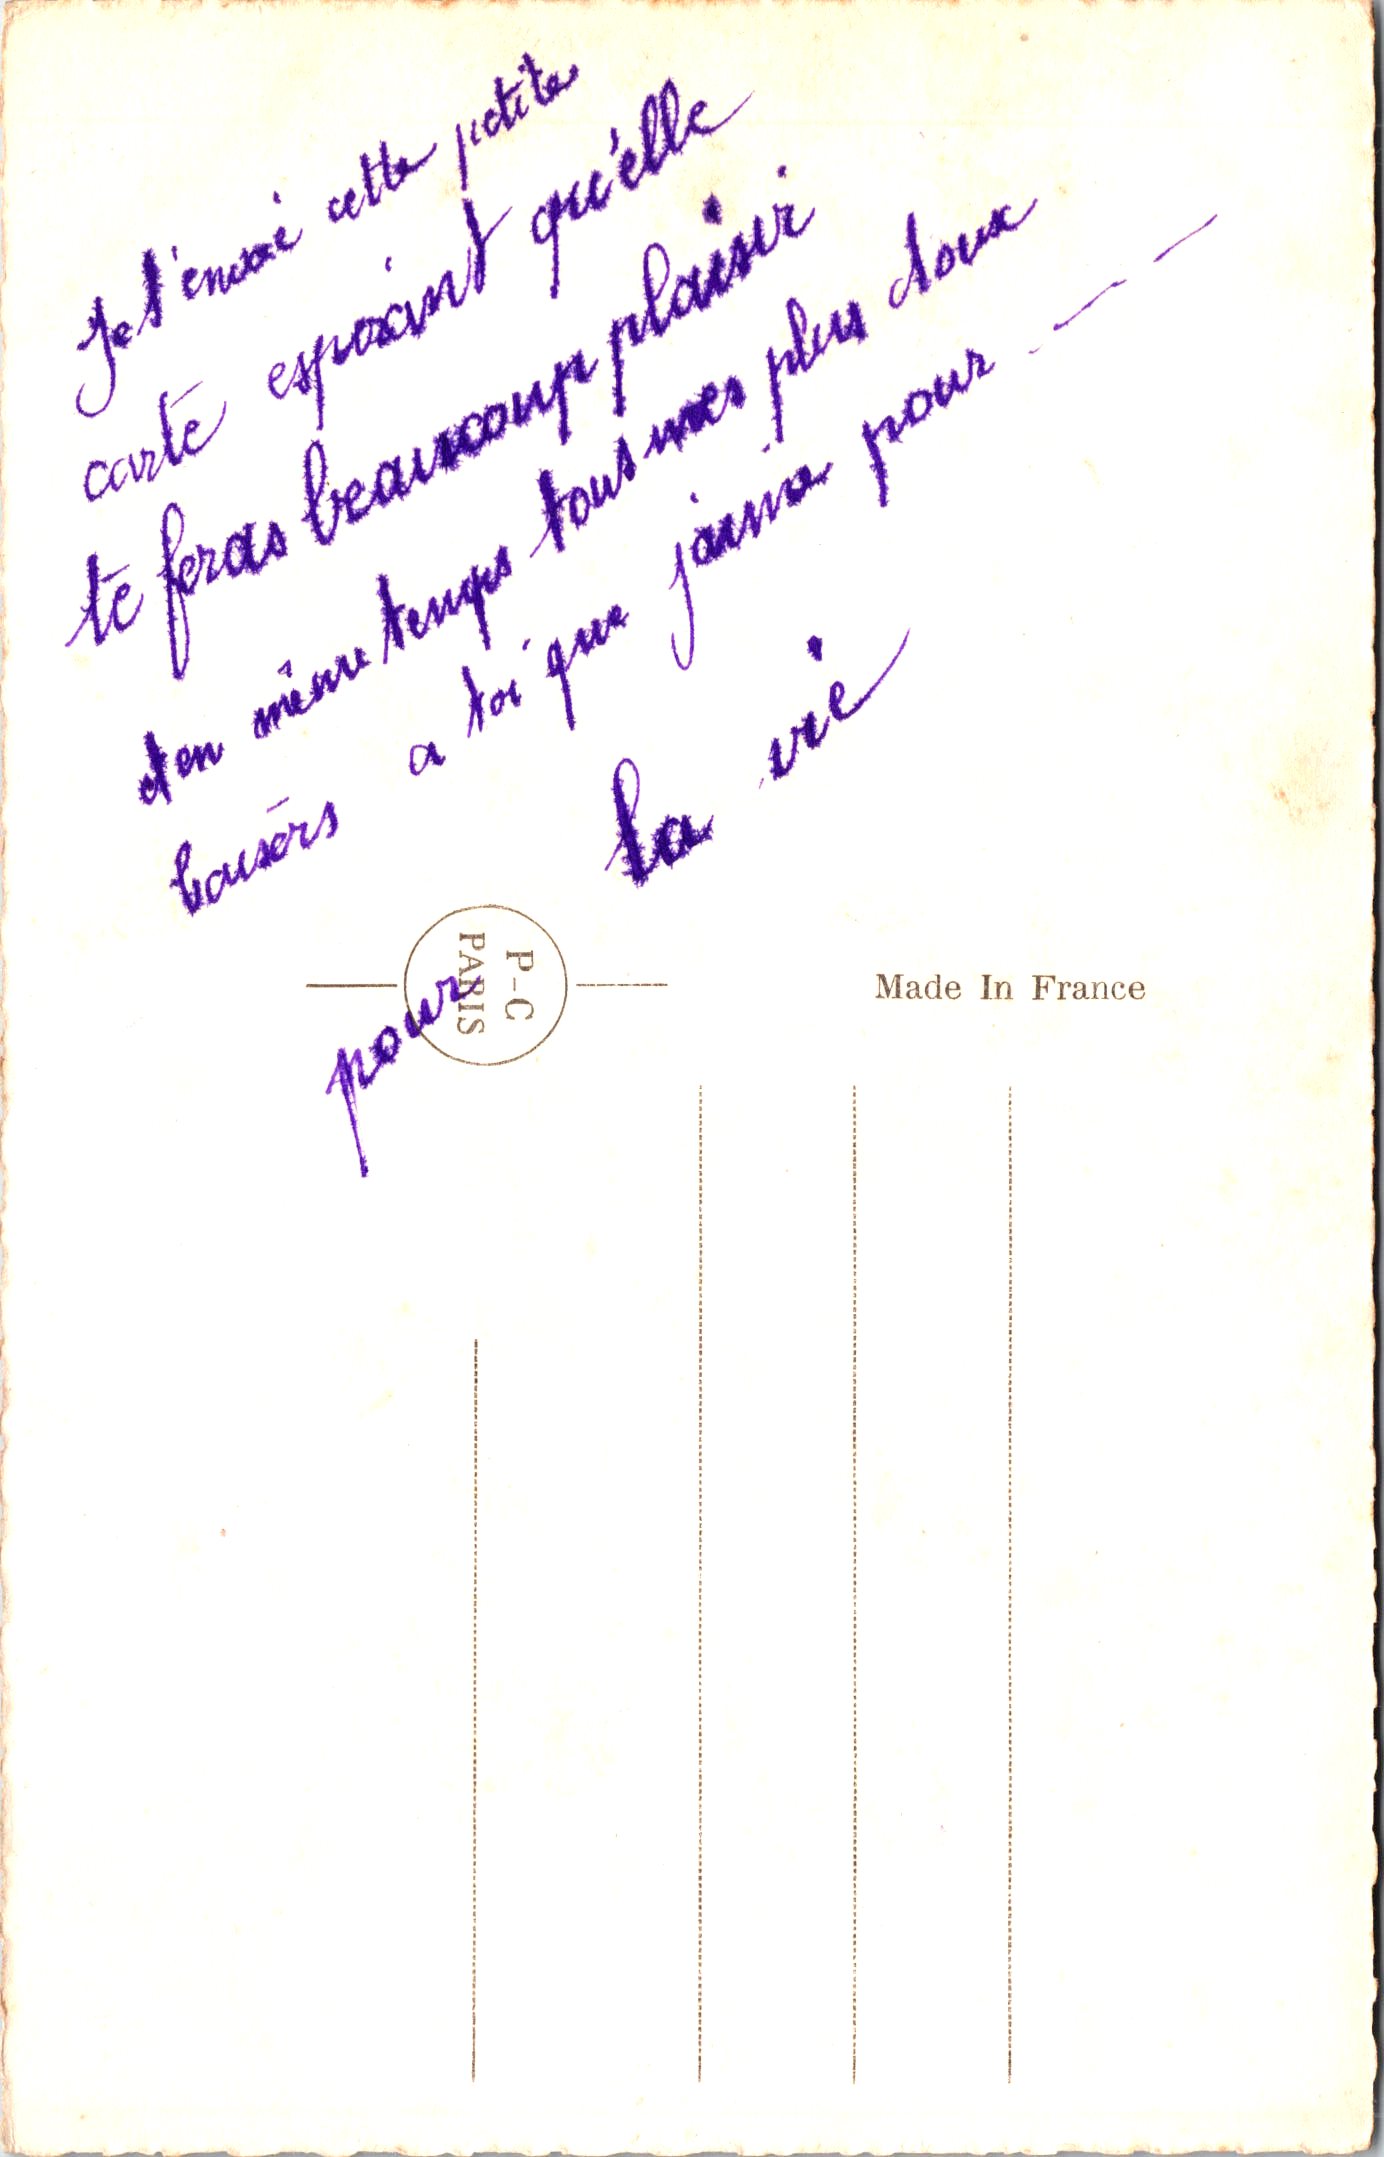 Je t'envoie cette petite
carte espoxant qu'elle
te feras beaucoup plaisir
et en même temps tous mes plus doux
baisers a toi que j'aime pour - — —
la vie
pour
P-C
PARIS
Made In France